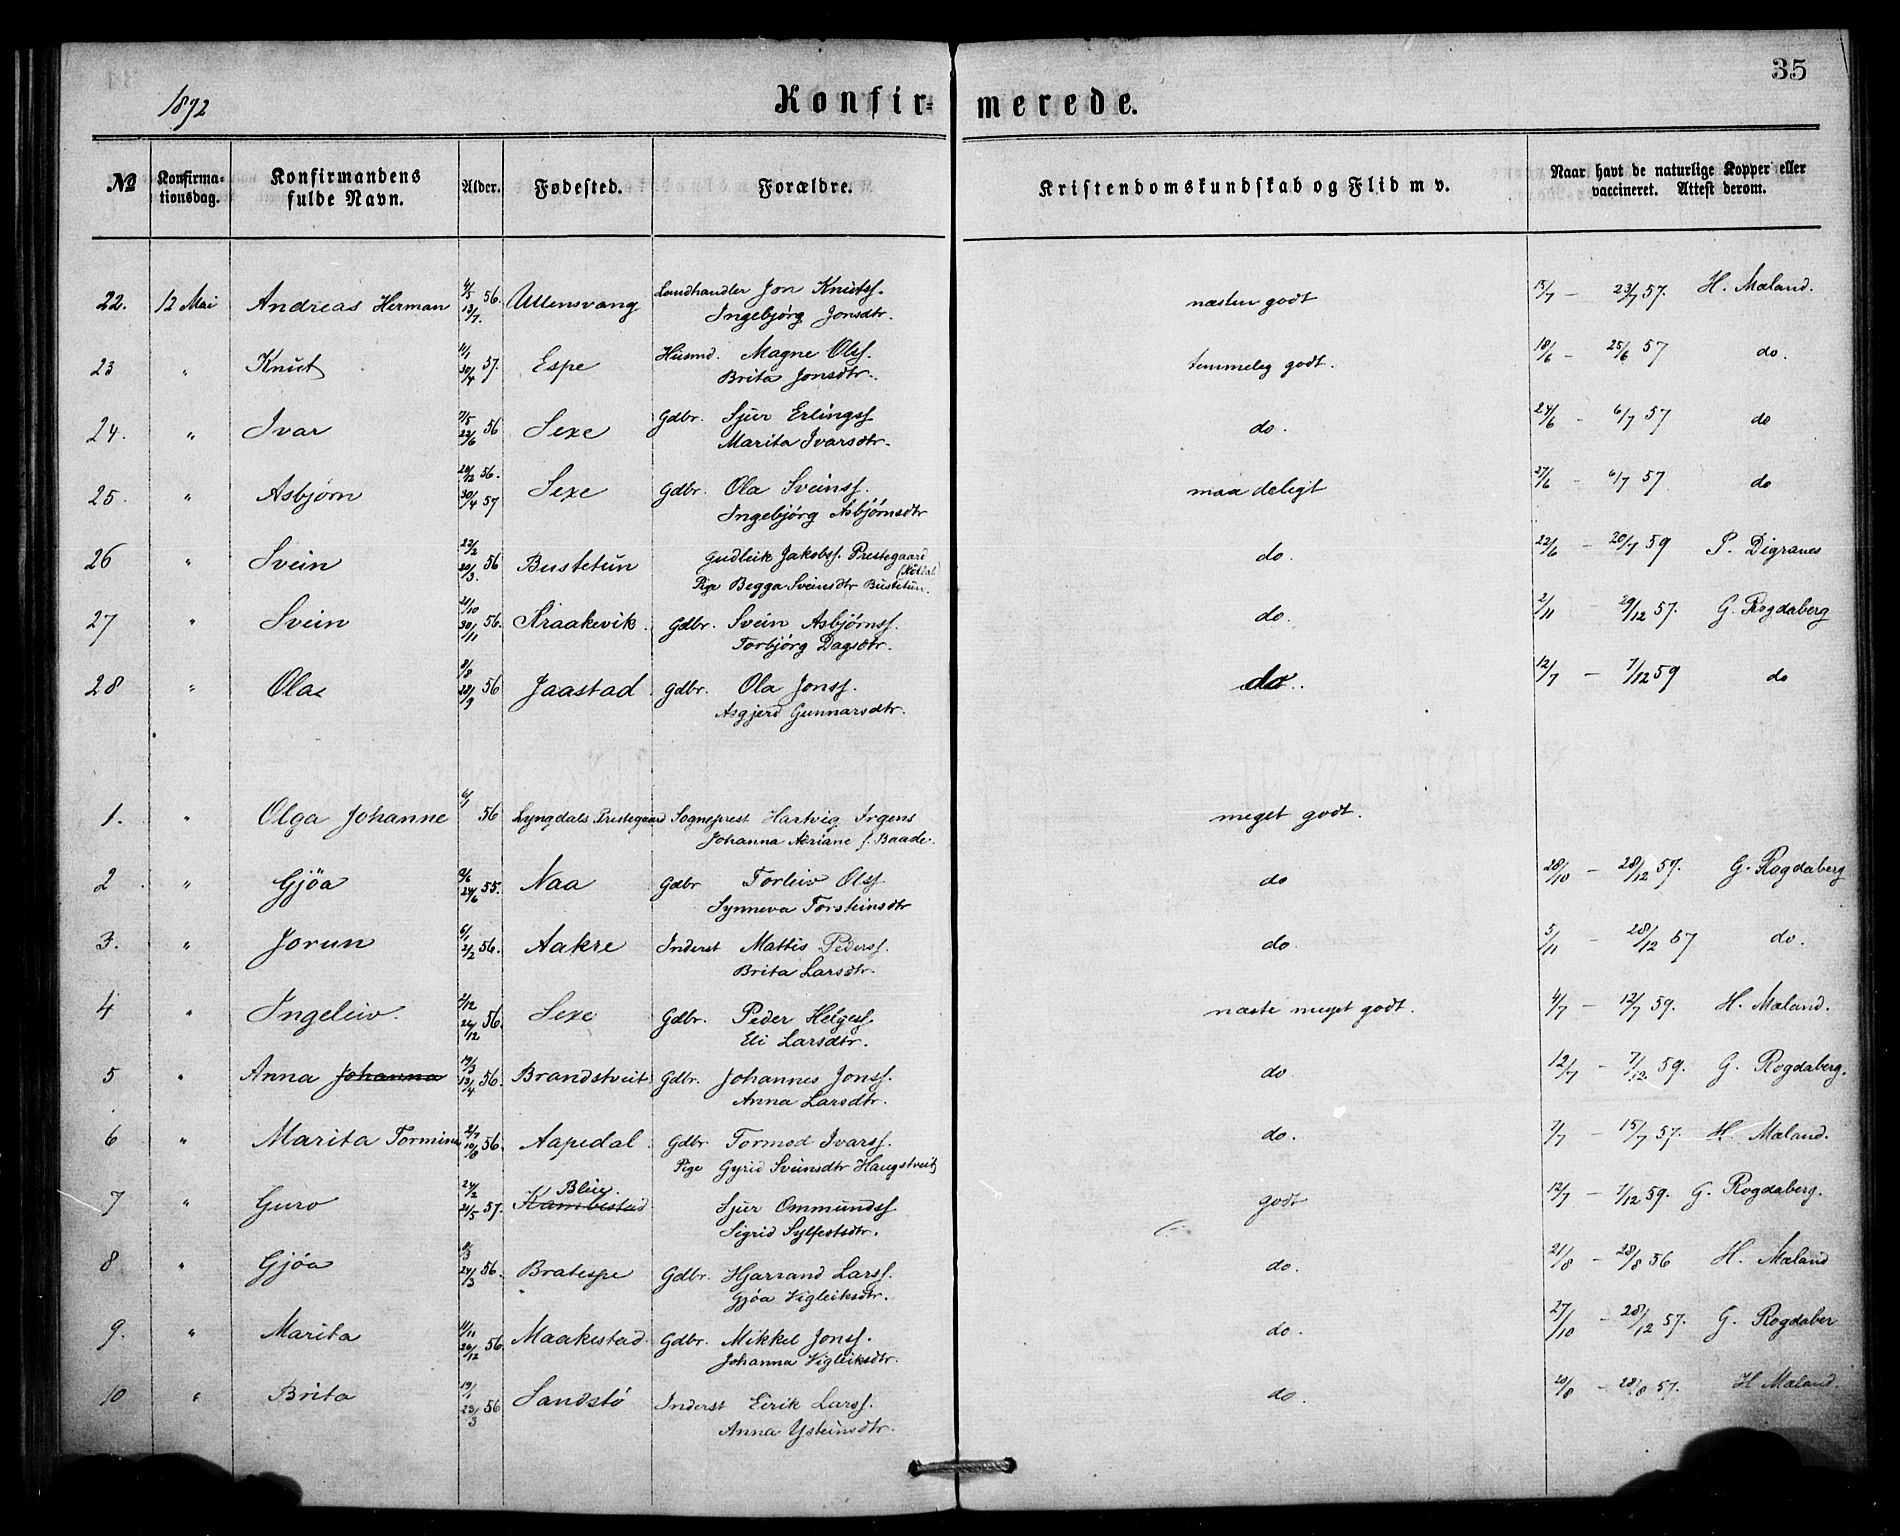 35
1872
Konfir-merede.
№ Konfirma-tionsdag. Konfirmandens fulde Navn. Alder. Fødested. Forældre. Kristendomskundskab og Flid m v. Naar havt de naturlige Kopper eller vaccineret. Attest derom.
22. 12 Mai Andreas Herman 4/5 13/7 56. Ullensvang Landhandler Jon Knutss. næsten godt 15/7 – 23/7 57. H. Mæland.
Ingebjørg Jonsdtr.
23 " Knut 11/1 30/4 57. Espe Husmd. Magne Olss. temmeleg godt. 18/6 – 25/6 57 do.
Brita Jonsdtr.
24. " Ivar 7/5 22/6 56 Sexe Gdbr. Sjur Erlingss. do. 24/6 – 6/7 57 do
Marita Ivarsdtr.
25. " Asbjørn 20/12 56. 30/4 57 Sexe Gdbr. Ola Sveinss. maadeligt 27/6 – 6/7 57 do
Ingebjørg Asbjørnsdtr
26 " Svein 22/2 20/3. 56 Bustetun Gudleik Jakobss. Prestegaard do. 22/6 – 20/7 59 P. Digranes
Pige Begga Sveinsdtr Bustetun.
27 " Svein 21/10 30/11 56. Kraakevik. Gdbr. Svein Asbjørnss. do. 2/11 – 29/12 57. G. Rogdaberg
Torbjørg Dagsdtr.
28 " Ola 8/8 28/9 56 Jaastad. Gdbr. Ola Jonss. do. 12/7 – 7/12 59 do
Asgjerd Gunnarsdtr.
1. " Olga Johanne 6/1 56 Lyngdals Prestegaard Sogneprest Hartvig Irgens meget godt.
Johanna Adriane f. Baade.
2 " Gjøa 9/6 24/6 55. Naa Gdbr Torleiv Olss do 28/10 – 28/12 57. G. Rogdaberg
Synneva Torsteinsdtr
3. " Jorun 6/1 2/2 56. Aakre Inderst Mattis Pederss. do. 5/11 – 28/12 57 do.
Brita Larsdtr.
4 " Ingeleiv. 2/12 26/12 56. Sexe Gdbr. Peder Helgess. næste meget godt. 4/7 – 12/7 59. H. Mæland.
Eli Larsdtr.
5 " Anna Johanna 19/3 13/4 56. Brandstveit Gdbr. Johannes Jonss. do 12/7 – 7/12. 59. G. Rogdaberg.
Anna Larsdtr.
6 " Marita Tormine 2/7 10/8 56. Aapedal. Gdbr. Tormod Ivarss. do. 7/7 – 15/7 57. H. Mæland.
Pige Gyrid Sveinsdtr Haugstveit
7 " Guro 24/2 21/5 57. Kambestad Bleie. Sjur Ommundss godt 12/7 – 7/12 59. G. Rogdaberg.
Sigrid Sylfestsdtr.
8 " Gjøa 8/3 24/3 56. Bratespe Gdbr. Hjarrand Larss. do. 21/8 – 28/8 56 H. Mæland
Gjøa Vigleiksdtr.
9. " Marita 11/11 26/12 56. Maakestad. Gdbr. Mikkel Jonss. do. 27/10 – 28/12 57. G. Rogdaber
Johanna Vigleiksdtr.
10 " Brita 19/1 23/3 56 Sandstø Inderst Eirik Larss. do. 20/8 – 28/8 57. H Mæland.
Anna Ysteinsdtr.